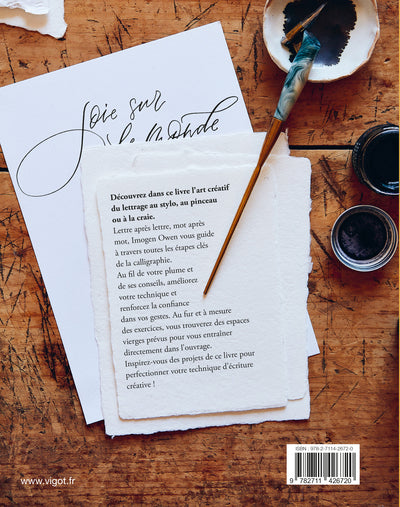 Joie sur
le Monde
Découvrez dans ce livre l'art créatif
du lettrage au stylo, au pinceau
ou à la craie.
Lettre après lettre, mot après
mot, Imogen Owen vous guide
à travers toutes les étapes clés
de la calligraphie.
Au fil de votre plume et
de ses conseils, améliorez
votre technique et
renforcez la confiance
dans vos gestes. Au fur et à mesure
des exercices, vous trouverez des espaces
vierges prévus pour vous entraîner
directement dans l'ouvrage.
Inspirez-vous des projets de ce livre pour
perfectionner votre technique d'écriture
créative !
www.vigot.fr
ISBN : 978-2-7114-2672-0
9 782711 426720